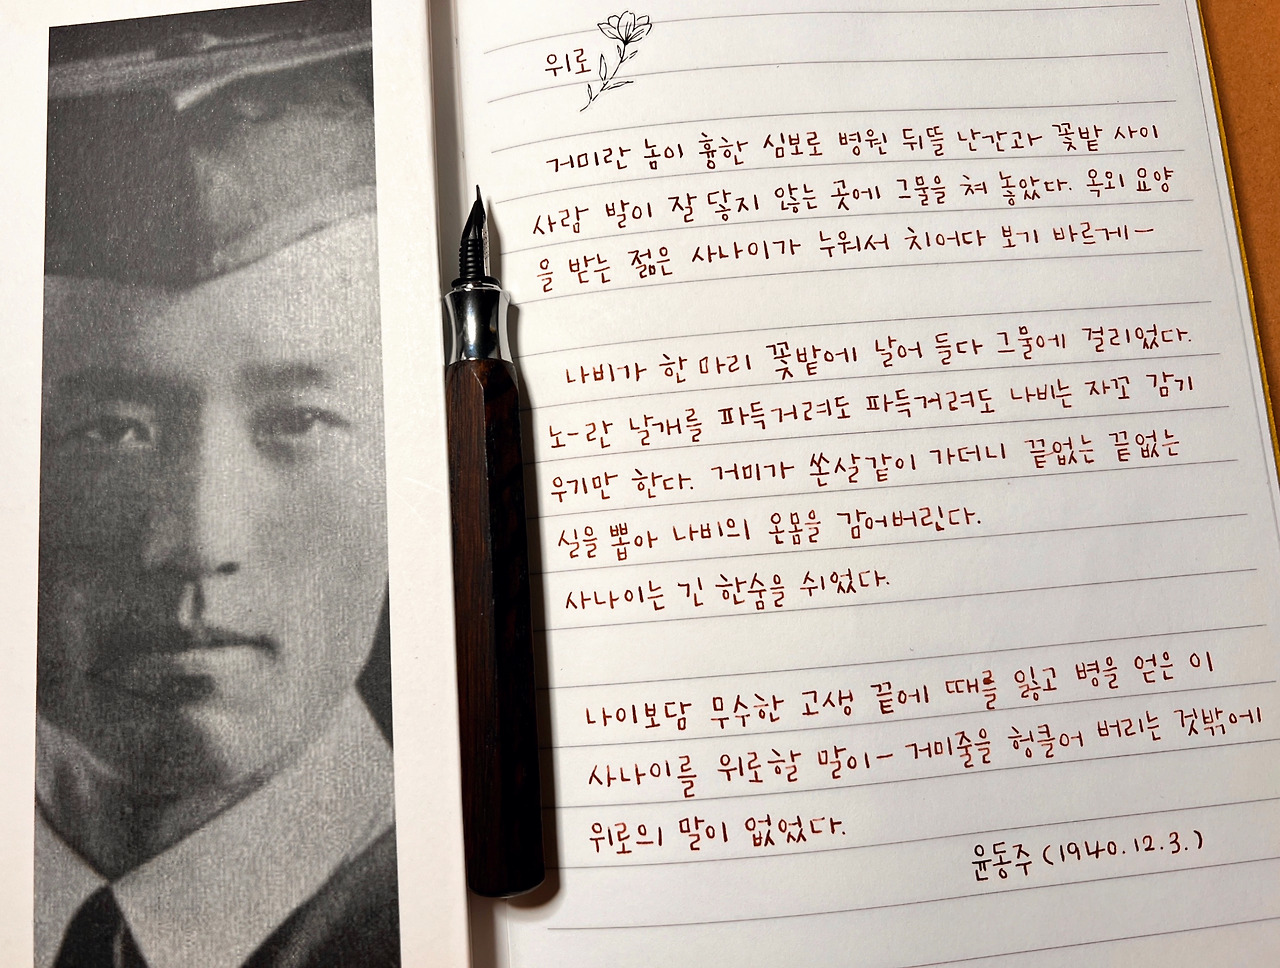 위로
거미란 놈이 흉한 심보로 병원 뒤뜰 난간과 꽃밭 사이
사람 발이 잘 닿지 않는 곳에 그물을 쳐 놓았다. 옥외 요양
을 받는 젊은 사나이가 누워서 치어다 보기 바르게—
나비가 한 마리 꽃밭에 날어 들다 그물에 걸리었다.
노-란 날개를 파득거려도 파득거려도 나비는 자꼬 감기
우기만 한다. 거미가 쏜살같이 가더니 끝없는 끝없는
실을 뽑아 나비의 온몸을 감어버린다.
사나이는 긴 한숨을 쉬었다.
나이보담 무수한 고생 끝에 때를 잃고 병을 얻은 이
사나이를 위로할 말이— 거미줄을 헝클어 버리는 것밖에
위로의 말이 없었다.
윤동주 (1940.12.3.)